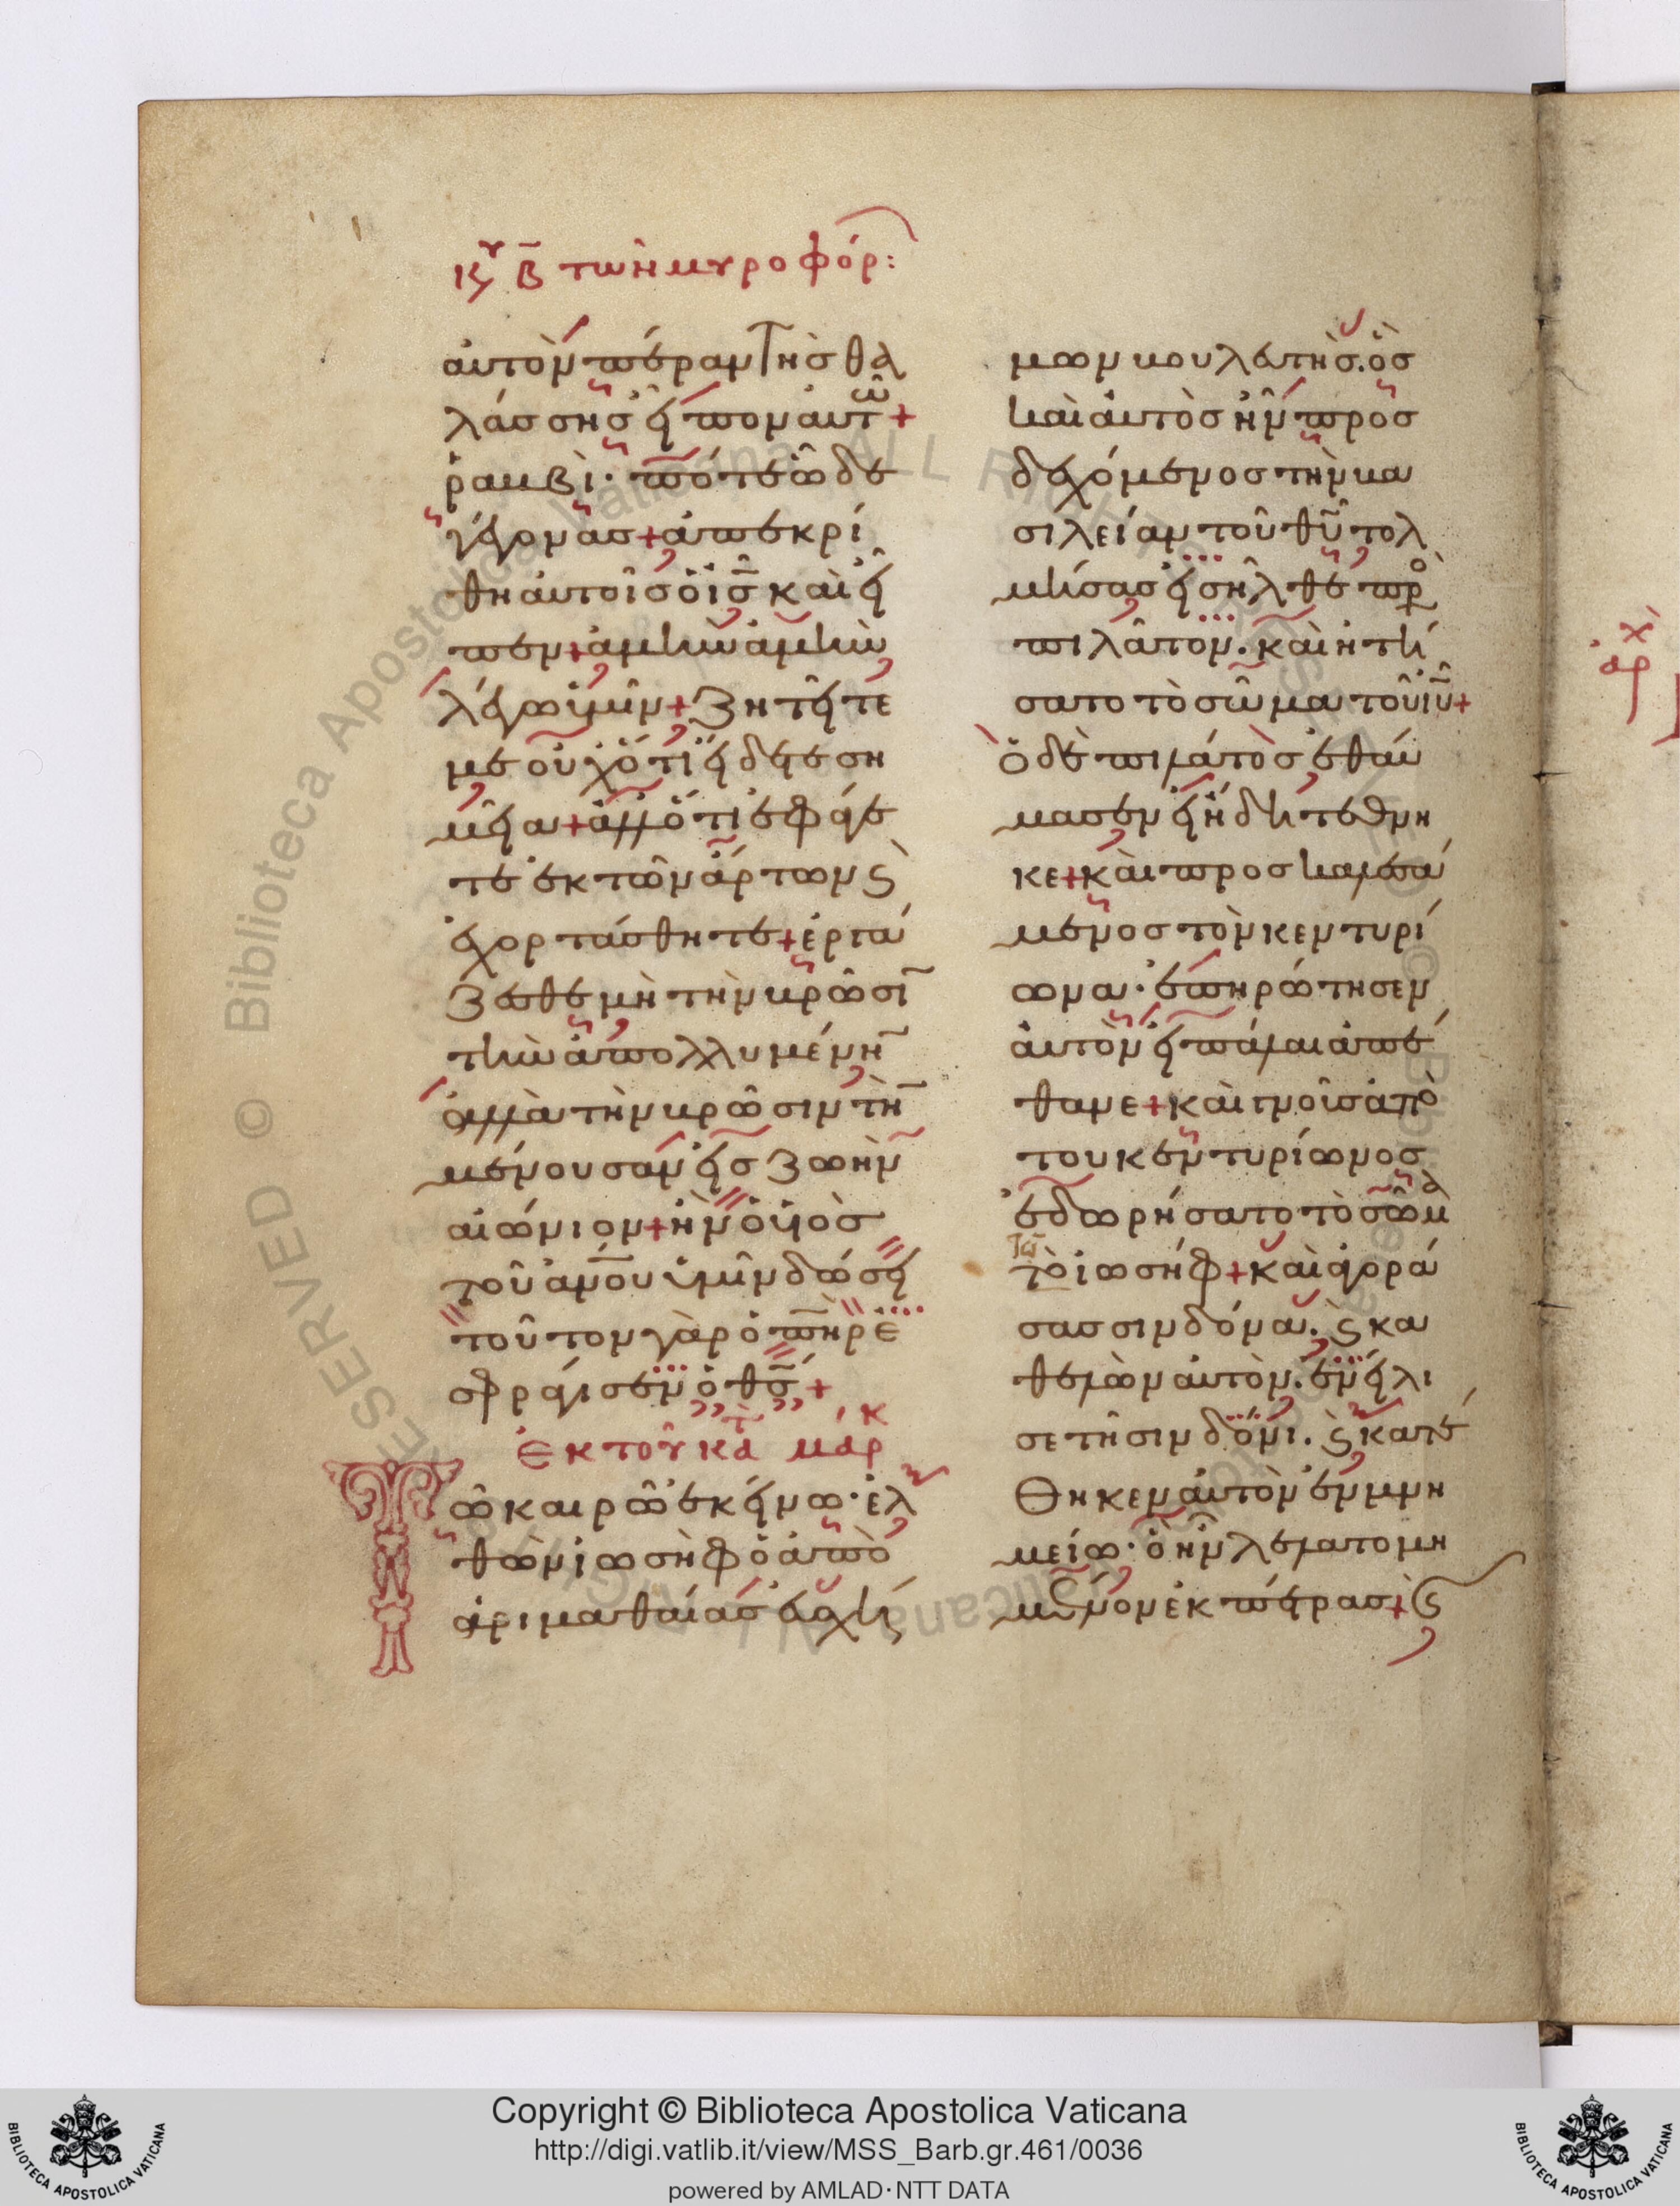 Κυ Β̅ τῶν μυροφόρ:
ἀυτὸν πέραν τῆς θα
λάσσης εἶπον ἀυτῶ+
ῥαββὶ· πότε ὧδε
γέγονας+ ἀπεκρί
θη ἀυτοῖς ὁ ις̅ καὶ εἶ
πεν+ ἀμὴν ἀμὴν
λέγω ὑμῖν+ ζητεῖτέ
με οὐχ ὅτι εἴδετε ση
μεῖα+ ἀλλ ὅτι ἐφάγε
τε ἐκ τῶν ἄρτων ϛ̀
ἐχορτάσθητε+ ἐργά
ζεσθε μὴ τὴν βρῶσι̅
τὴν ἀπολλυμένη̅
ἀλλὰ τὴν βρῶσιν τὴ̅
μένουσαν εἰς ζωὴν
αἰώνιον+ ἣν ὁ υἱὸς
τοῦ ἀνο̅υ ὑμῖν δώσει
τοῦτον γὰρ ὁ πη̅ρ ἐ
σφράγισεν ὁ θς̅+
Ἐκ τοῦ κατὰ μάρκ
Τῶ καιρῶ ἐκείνω· ἐλ
θὼν ἰωσὴφ ὁ ἀπὸ
ἀριμαθαίας εὐσχή
μων βουλευτὴς. ὃς
καὶ ἀυτὸς ἦν προς
δεχόμενος τὴν βα
σιλείαν τοῦ θυ̅ τολ
μήσας εἰσῆλθε πρὸ
πιλᾶτον. καὶ ἠτή
σατο τὸ σῶμα τοῦ ιυ̅+
ὁ δὲ πιλάτος ἐθαύ
μασεν εἰ ἤδη τέθνη
κε+ καὶ προσκαλεσά
μενος τὸν κεντυρί
ωνα· ἐπηρώτησεν
ἀυτὸν εἰ πάλαι ἀπέ
θανε+ καὶ γνοὺς ἀπὸ
του κεντυρίωνος
ἐδωρήσατο τὸ σῶμα
τῶ ἰωσήφ+ καὶ ἀγορά
σας σινδόνα. ϛ̀ κα
θελὼν ἀυτὸν. ἐνείλι
σε τῆ σινδόνι. ϛ̀ κατέ
θηκεν ἀυτὸν ἐν μνη
μείω· ὃ ἦν λελατομη
μένον ἐκ πέτρας+ ϛ̀
Biblioteca Apostolica Vaticana ALL RIGHTS RESERVED ©
Copyright © Biblioteca Apostolica Vaticana
http://digi.vatlib.it/view/MSS_Barb.gr.461/0036
powered by AMLAD·NTT DATA
BIBLIOTECA APOSTOLICA VATICANA
BIBLIOTECA APOSTOLICA VATICANA